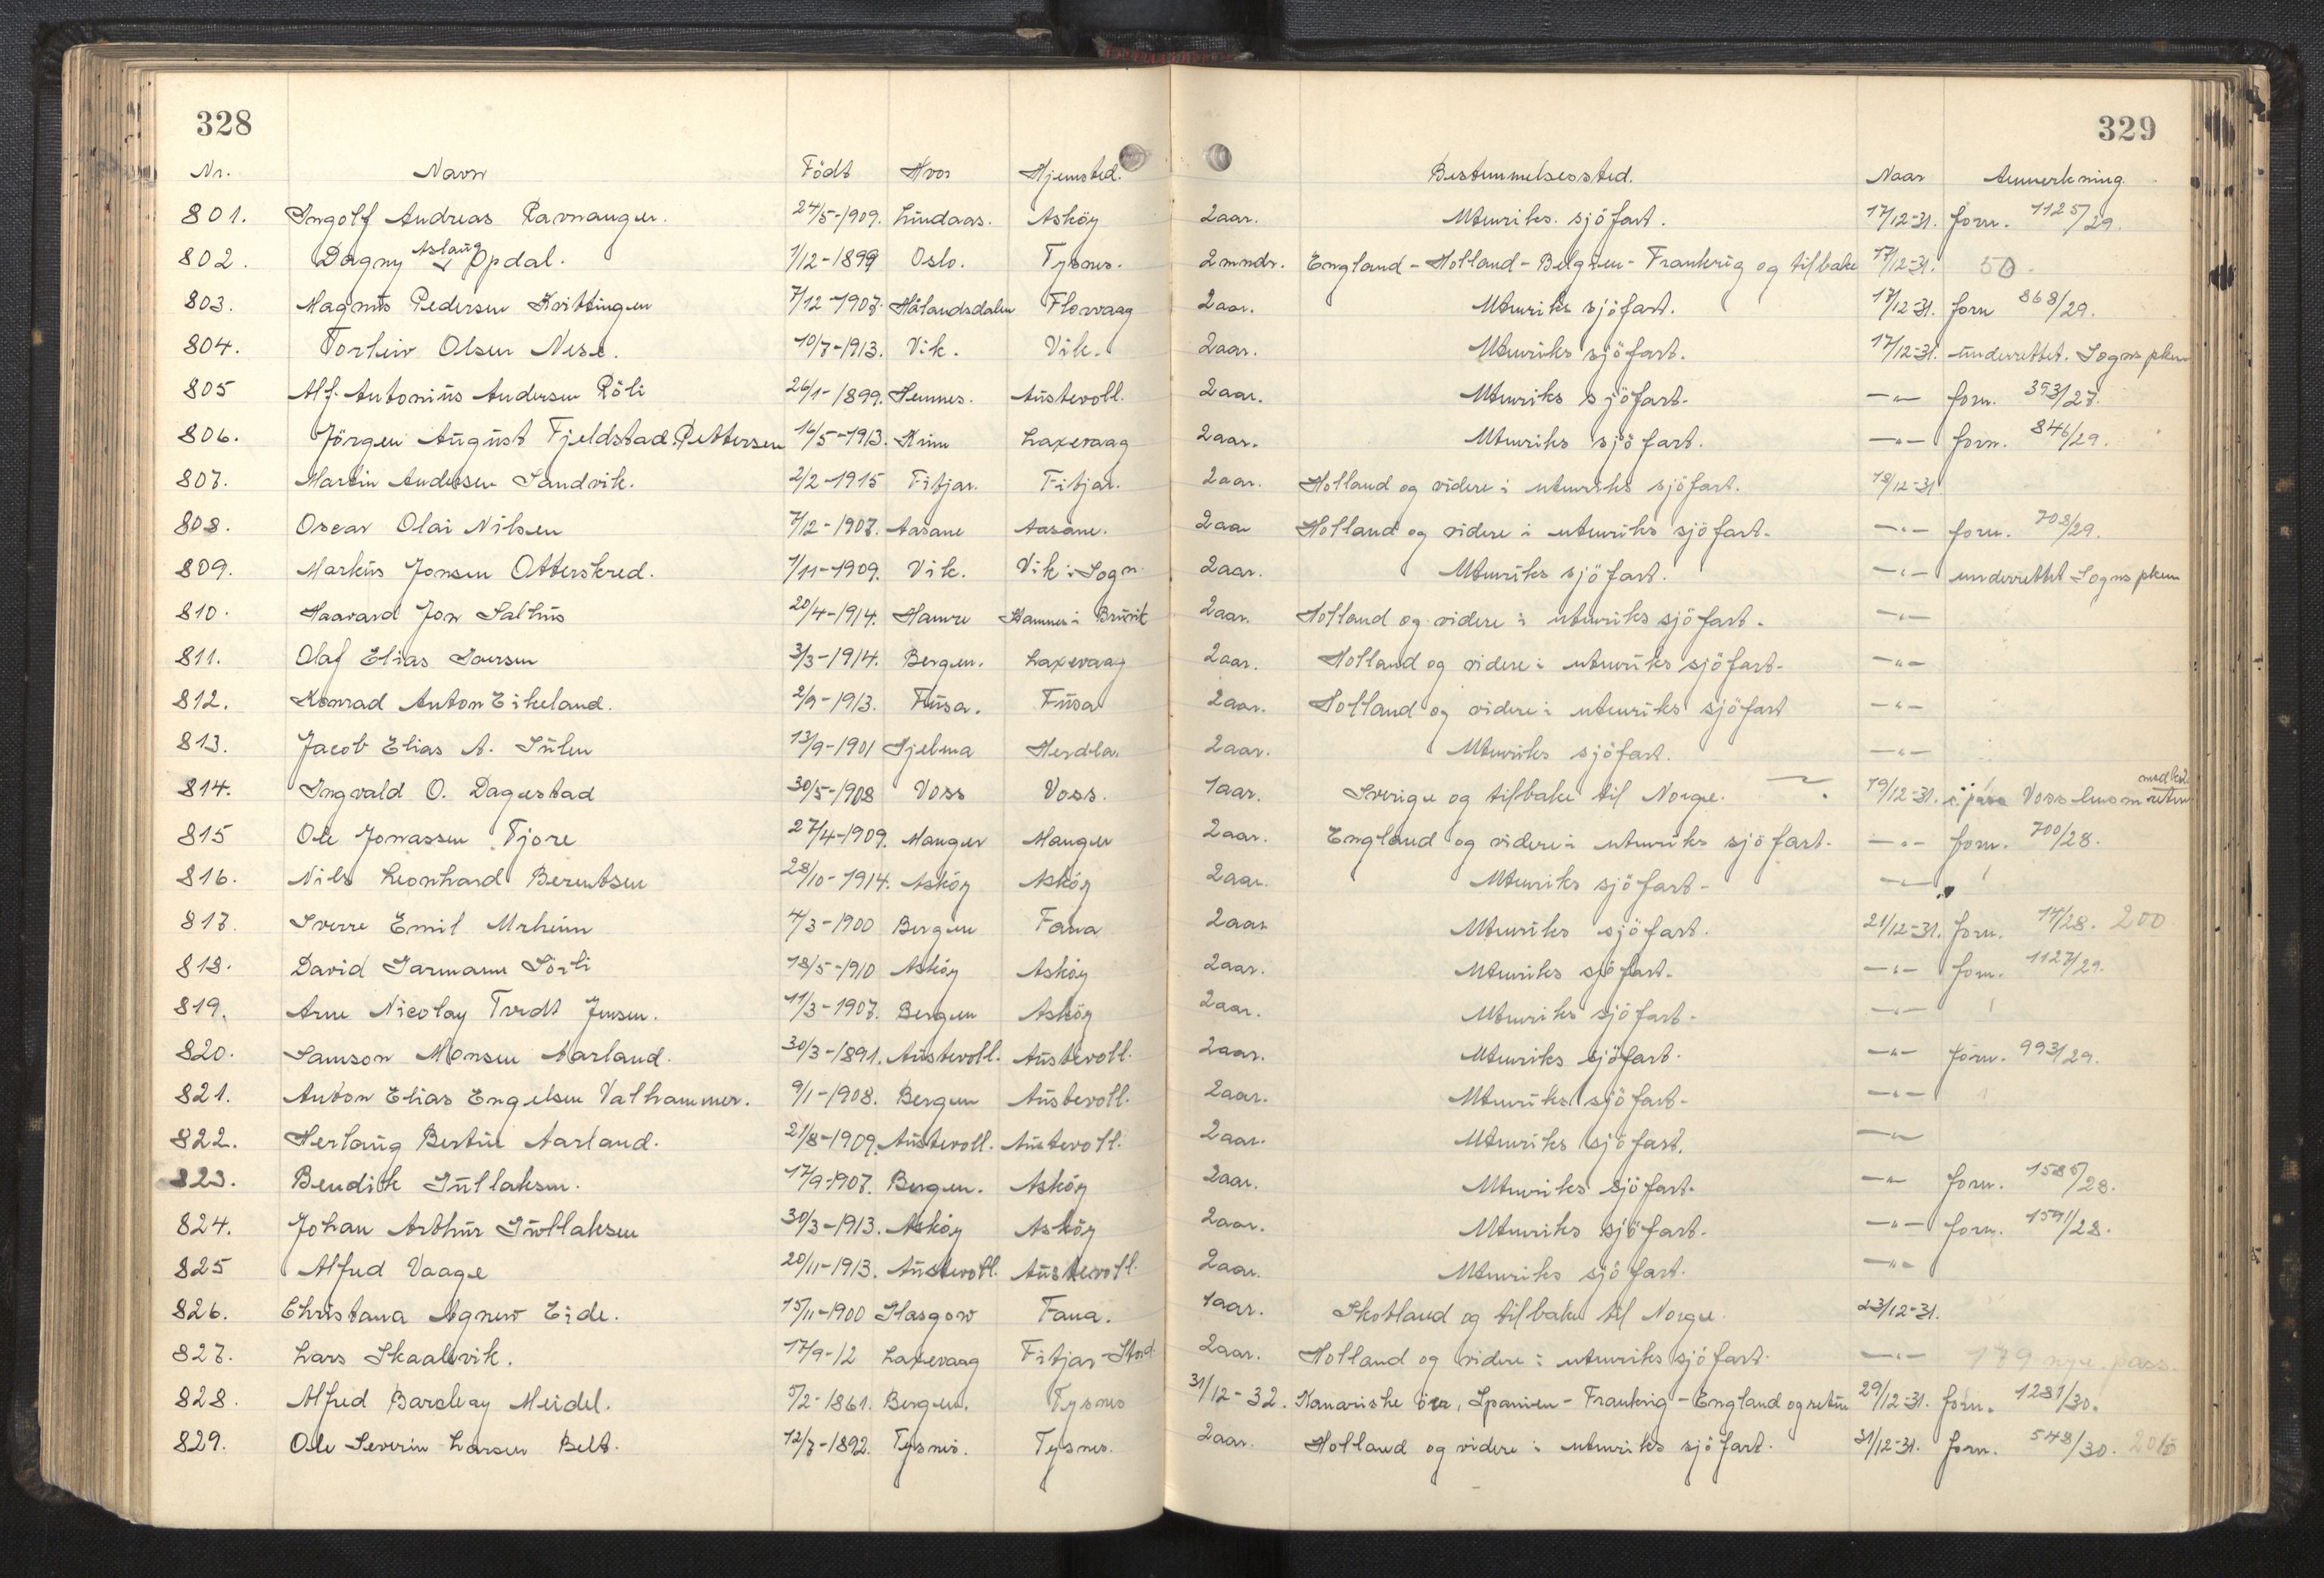 328
329
Nr. Navn Födt Hvor Hjemsted. Bestemmelsessted. Naar Anmerkning.
801. Ingolf Andreas Ravnanger. 24/5-1909. Lindaas. Asköy 2aar. Utenriks. sjöfart. 17/12-31. forn. 1125/29.
802. Dagny Aslaug Opdal. 1/12-1899 Oslo. Tysnes. 2mndr. England - Holland - Belgien - Frankrig og tilbake 17/12-31. 50.
803. Magnus Pedersen Kvittingen 7/12-1907. Hålandsdalen Florvaag 2aar. Utenriks sjöfart. 17/12-31. forn 868/29.
804. Torleiv Olsen Nese. 10/7-1913. Vik. Vik. 2aar. Utenriks sjöfart. 17/12-31. underrettet. Sogns pkm
805 Alf. Antonius Andersen Röli 26/1-1899. Hemnes. Austevoll. 2aar. Utenriks sjöfart. -"- forn. 393/27.
806. Jörgen August Fjeldstad Pettersen 16/5-1913. Krim Laxevaag 2aar. Utenriks sjöfart. -"- forn. 846/29.
807. Martin Andersen Sandvik. 2/2-1915 Fitjar. Fitjar. 2aar. Holland og videre i utenriks sjöfart. 18/12-31
808. Oscar Olai Nilsen 7/12-1907. Aasane Aasane. 2aar Holland og videre i utenriks sjöfart. -"- forn. 708/29.
809. Markus Jonsen Otterskred. 1/11-1909. Vik. Vik i Sogn. 2aar. Utenriks sjöfart. -"- underrettet Sogns pkm
810. Haavard Jon Salhus 20/4-1914. Hamre Hamnes i Bruvik 2aar. Holland og videre i utenriks sjöfart. -"-
811. Olaf Elias Iversen 3/3-1914. Bergen. Laxevaag 2aar. Holland og videre i utenriks sjöfart. -"-
812. Konrad Anton Eikeland. 2/9-1913. Fusa. Fusa 2aar. Holland og videre i utenriks sjöfart -"-
813. Jacob Elias A. Sulen 13/9-1901 Hjelma Herdla. 2aar. Utenriks sjöfart. -"-
814. Ingvald O. Dagestad 30/5-1908 Voss Voss. 1aar. Sverige og tilbake til Norge. 19/12-31. Voss
815 Ole Jonassen Fjore 27/4-1909. Manger Manger 2aar. England og videre i utenriks sjöfart. -"- forn. 700/28.
816. Nils Leonhard Berentsen 28/10-1914. Asköy Asköy 2aar. Utenriks sjöfart. -"-
817. Sverre Emil Urheim 4/3-1900 Bergen Fana 2aar. Utenriks sjöfart. 21/12-31. forn. 14/28. 200
818. David Jarmann Sörli 18/5-1910 Asköy Asköy 2aar. Utenriks sjöfart. -"- forn. 1127/29.
819. Arne Nicolay Tvedt Jensen. 11/3-1907. Bergen Asköy 2aar. Utenriks sjöfart. -"-
820. Samson Monsen Aarland. 30/3-1891. Austevoll. Austevoll. 2aar. Utenriks sjöfart. -"- forn. 993/29.
821. Anton Elias Engelsen Valhammer. 9/1-1908. Bergen Austevoll. 2aar. Utenriks sjöfart. -"-
822. Herlaug Bertin Aarland. 21/8-1909. Austevoll. Austevoll. 2aar. Utenriks sjöfart. -"-
823. Bendik Gullaksen. 17/9-1907. Bergen. Asköy 2aar. Utenriks sjöfart. -"- forn. 1585/28.
824. Johan Arthur Gullaksen 30/3-1913. Asköy Asköy 2aar. Utenriks sjöfart. -"- forn. 1591/28.
825 Alfred Vaage 20/11-1913. Austevoll. Austevoll. 2aar. Utenriks sjöfart. -"-
826. Christana Agnew Eide. 15/11-1900 Glasgow Fana. 1aar. Skotland og tilbake til Norge. 23/12-31.
827. Lars Skaalevik. 17/9-12 Laxevaag Fitjar-Stord 2aar. Holland og videre i utenriks sjöfart. -"- 179 nye pass.
828. Alfred Barclay Meidel. 5/2-1861. Bergen. Tysnes 31/12-32. Kanariske öer, Spanien - Frankrig - England og retur 29/12-31. forn. 1281/30.
829. Ole Severin Larsen Belt. 12/7-1892. Tysnes. Tysnes. 2aar. Holland og videre i utenriks sjöfart. 31/12-31. forn. 548/30.